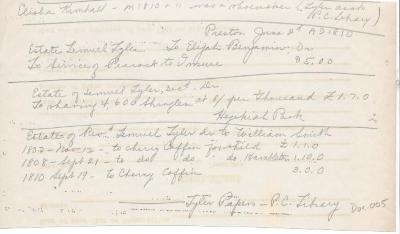 Elisha Kimball - m 1810 + was a shoemaker (Tyler
P.C. Library)
Preston June 2d A.D. 1810
Estate Lemuel Tyler To Elijah Benjamin, Dr
To Service of Peacock to Insure $5,00
Estate of Lemuel Tyler, Dr
To shaving 4,600 Shingles at 6/ per Thousand £1.7.0
Hezekiah Park
Estate of Rev.d Lemuel Tyler Dr to William Smith
1802 - Nov 12 - to cherry Coffin for child £1.1.0
1808 - Sept 21 - to do do do 1.19.0
1810 Sept 19 - to Cherry Coffin 3.0.0
Tyler Papers - P.C. Library Doc. 005